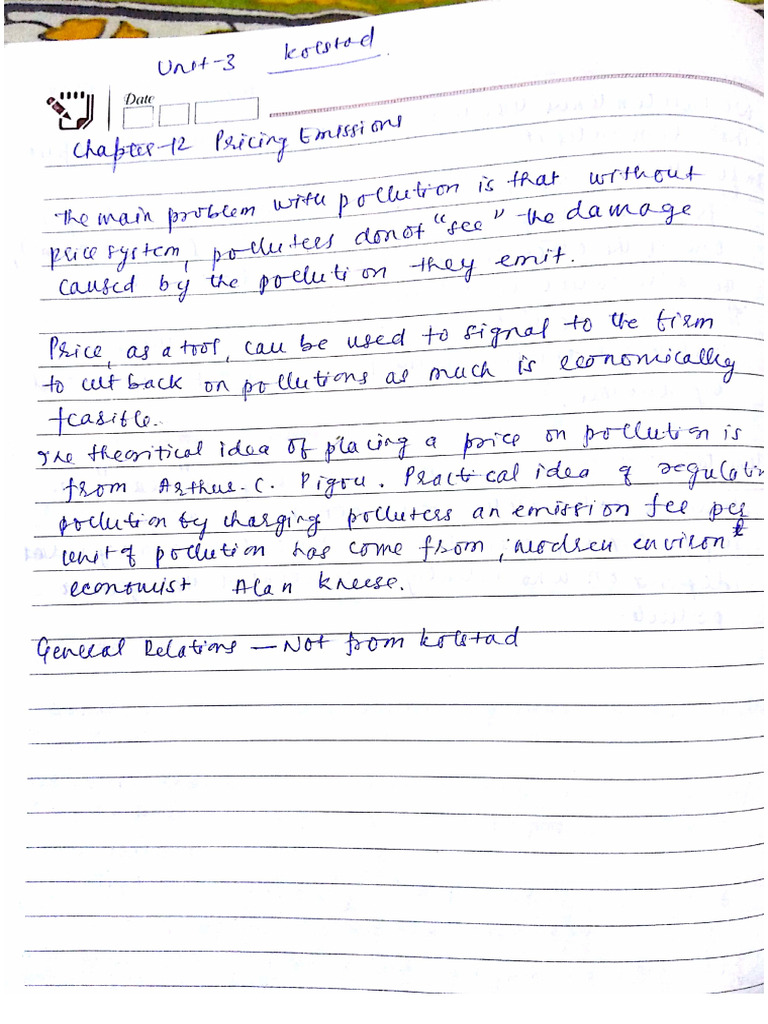 Unit-3 Kolstad
Date
Chapter-12 Pricing Emissions
The main problem with pollution is that without
price system, polluters do not "see" the damage
caused by the pollution they emit.
Price, as a tool, can be used to signal to the firm
to cut back on pollutions as much is economically
feasible.
The theoritical idea of placing a price on pollution is
from Arthur. C. Pigou. Practical idea of regulatin
pollution by charging polluters an emission fee per
unit of pollution has come from, modren environ t
economist Alan Kneese.
General Relations — Not from Kolstad